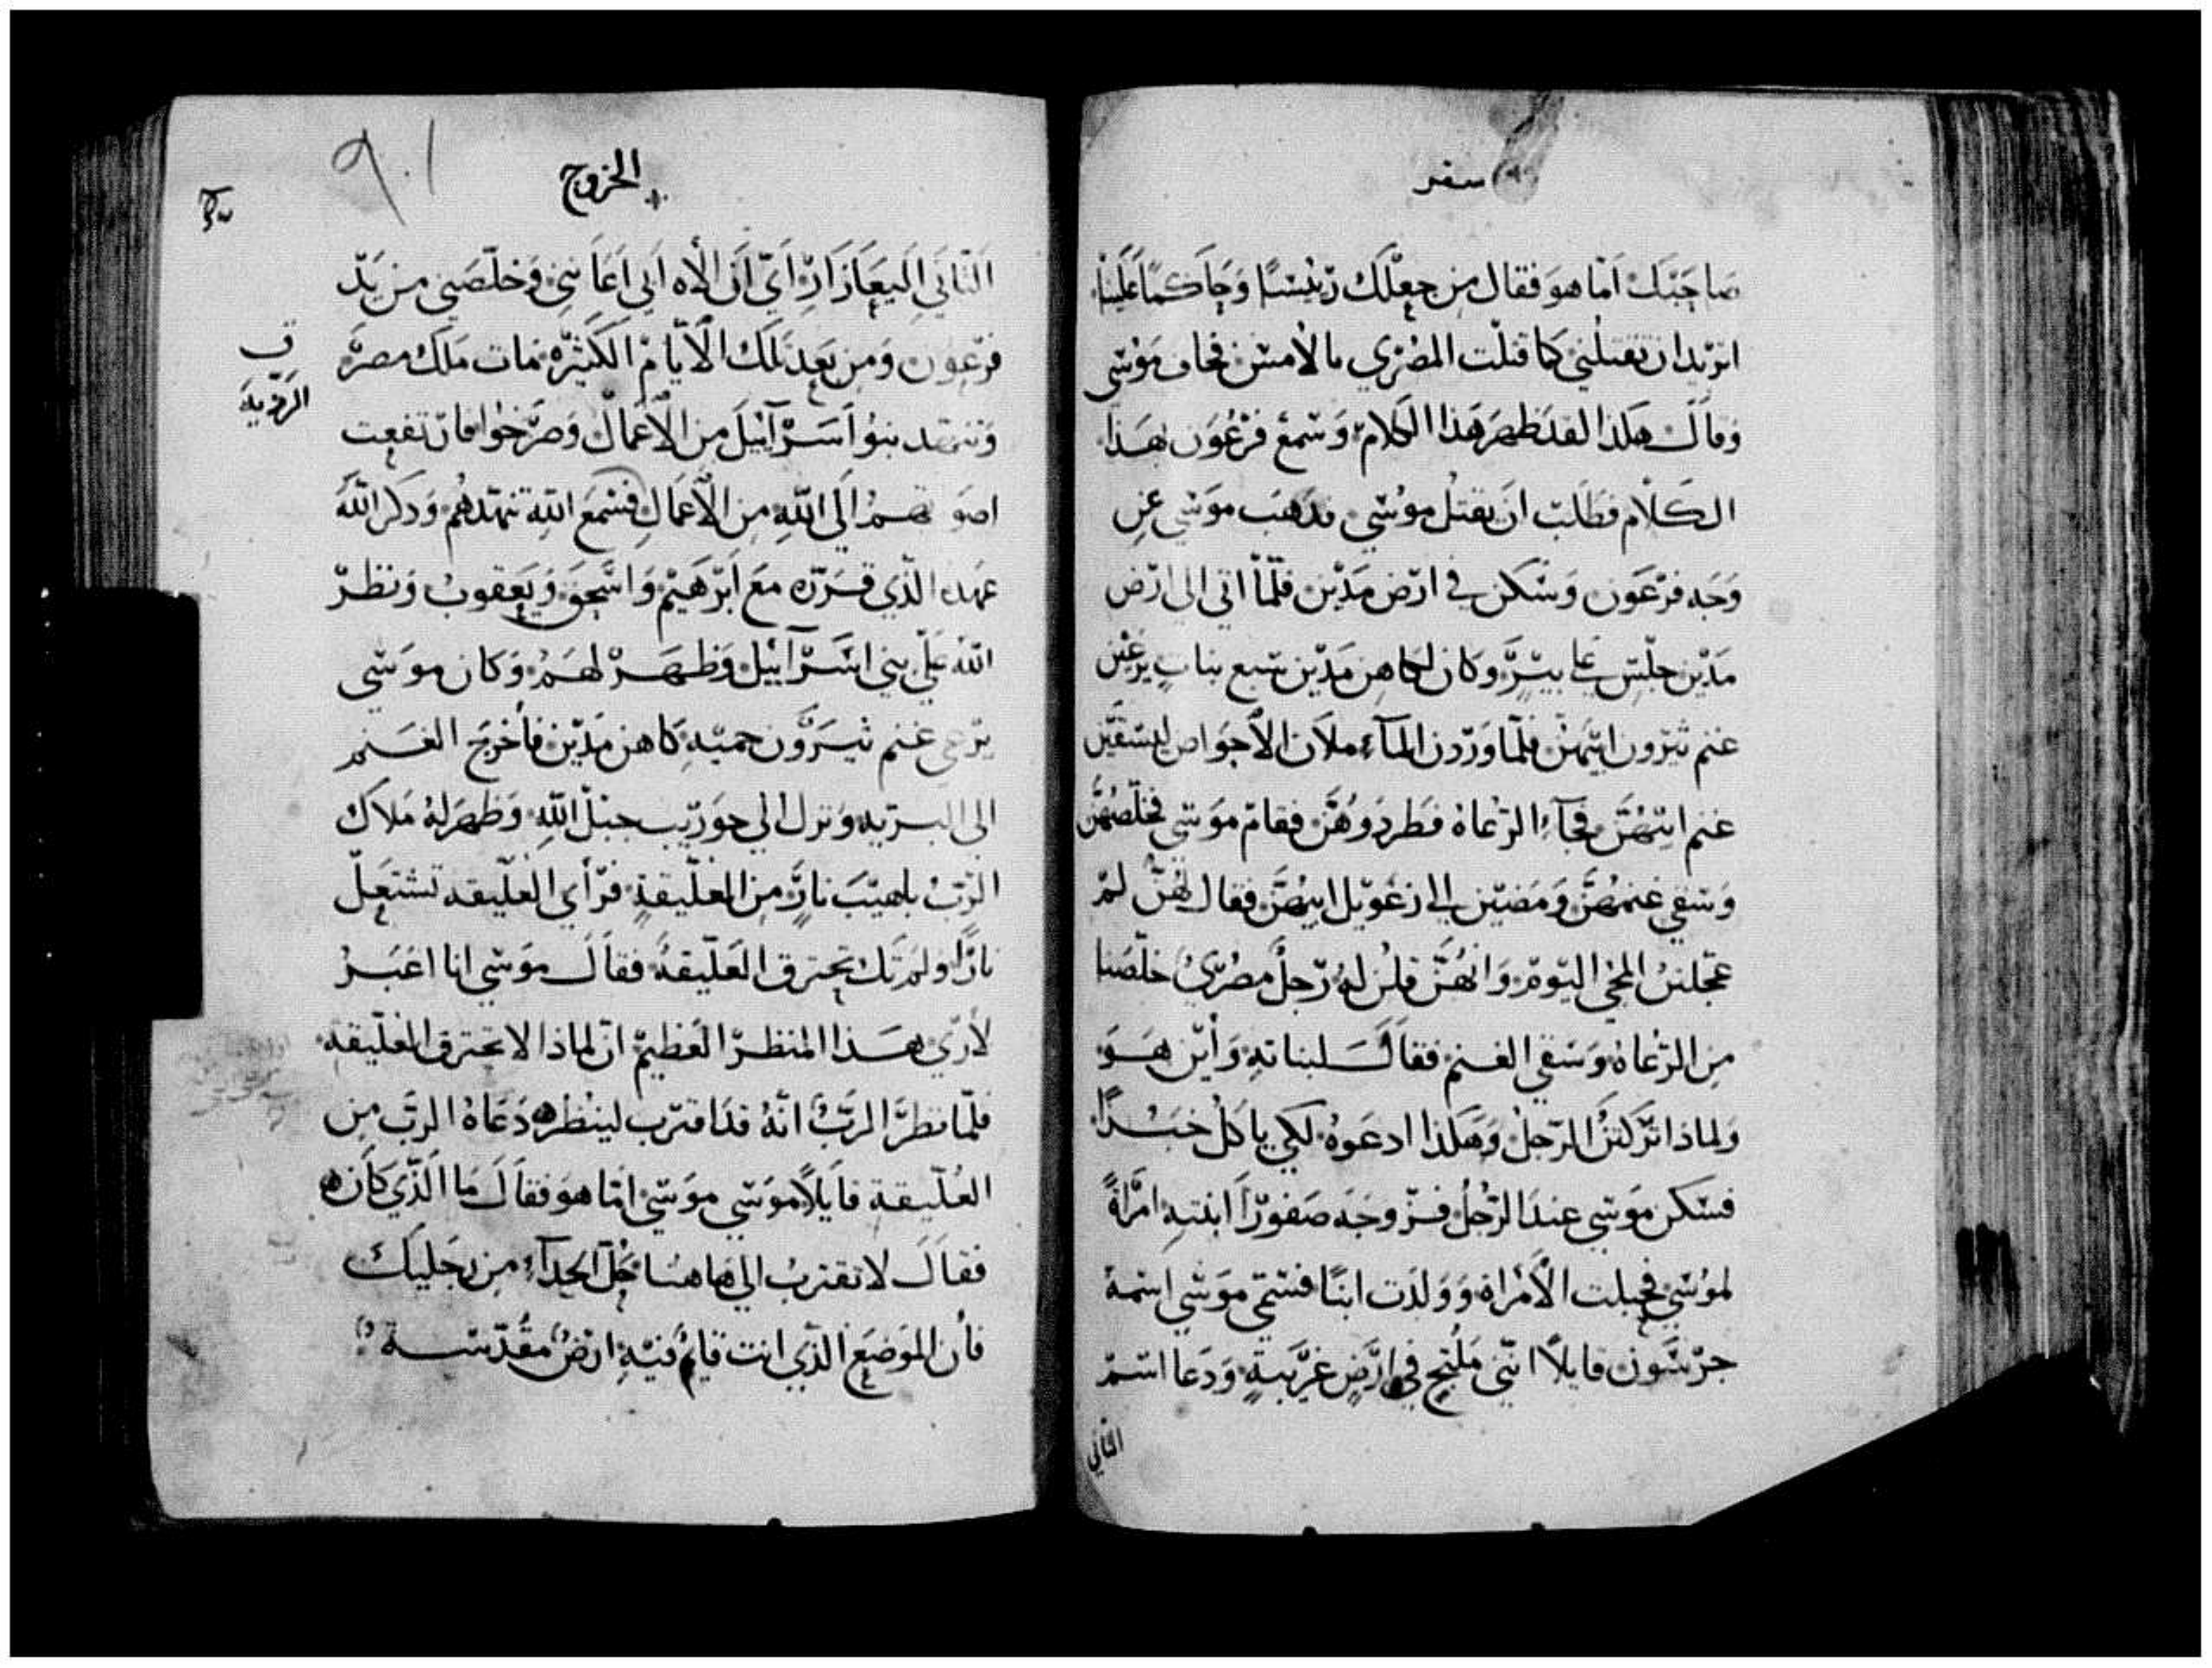 سفر
صاحبك اما هو فقال من جعلك رئيسًا وحاكمًا علينا
اتريد ان تقتلني كما قتلت المصري بالأمس فخاف موسى
وقال هكذا لقد ظهر هذا الكلام وسمع فرعون بهذا
الكلام فطلب ان يقتل موسي فذهب موسي عن
وجه فرعون وسكن في ارض مدين فلما اتي الي ارض
مدين جلس علي بير وكان لكاهن مدين سبع بنات يرعين
غنم ثيرون ابيهن فلما وردن المآء ملأن الأجواض ليسقين
غنم ابيهن فجآء الرعاة فطردوهن فقام موسي فخلصهن
وسقي غنمهن ومضين الي زعويل ابيهن فقال لهن لم
عجلتن المجي اليوم وانهن قلن له رجل مصري خلصنا
من الرعاة وسقي الغنم فقال لبناته وأين هو
ولماذا تركتن الرجل وهكذا ادعوه لكي ياكل خبزًا
فسكن موسي عند الرجل فزوجه صفورا ابنته امرأةً
لموسي فحبلت الأمراة وولدت ابنًا فسمي موسي اسمه
جرسون قايلًا انني ملتج في ارض غريبة ودعا اسم
الثاني
الخروج
الثاني اليعازار اي ان الأه ابي اعانني وخلصني من يد
فرعون ومن بعد تلك الأيام الكثيره مات ملك مصر
وتنهد بنو اسرآئيل من الأعمال وصرخوا فارتفعت
اصوتهم الي الله من الأعمال فسمع الله تنهدهم وذكر الله
عهده الذي قرره مع ابرهيم واسحق ويعقوب ونظر
الله علي بني اسرآئيل وظهر لهم وكان موسي
يرعي غنم ثيرون حميه كاهن مدين فأخرج الغنم
الي البريه ونزل الي حوريب جبل الله وظهر له ملاك
الرب بلهيب نار من العليقة فرأي العليقه تشتعل
نارًا ولم تك تحترق العليقة فقال موسي انا اعبر
لأري هذا المنظر العظيم ان لماذا لا تحترق العليقة
فلما نظر الرب انه قد اقترب لينظره دعاه الرب من
العليقة قايلًا موسي موسي اما هو فقال ما الذي كان
فقال لا تقترب الي هاهنا حل الحدآء من رجليك
فأن الموضع الذي انت قايم فيه ارض مقدسة
في
الرؤية